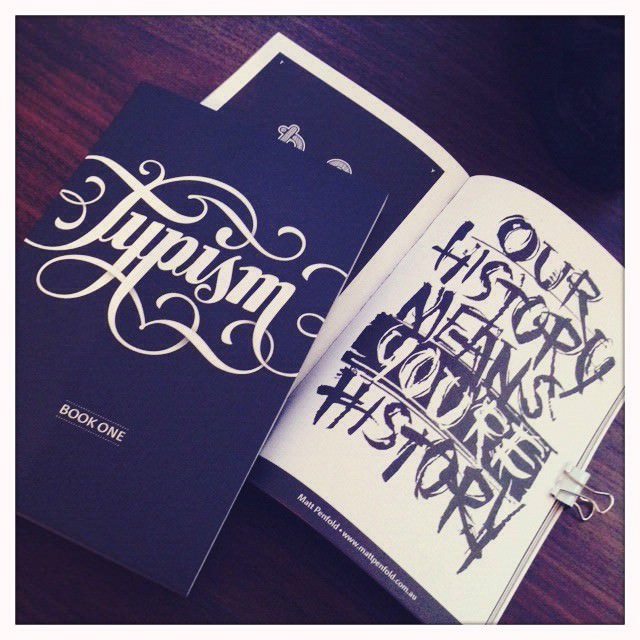 Typism
BOOK ONE
OUR
HISTORY
MEANS
YOU'RE
HISTORY
Matt Penfold • www.mattpenfold.com.au